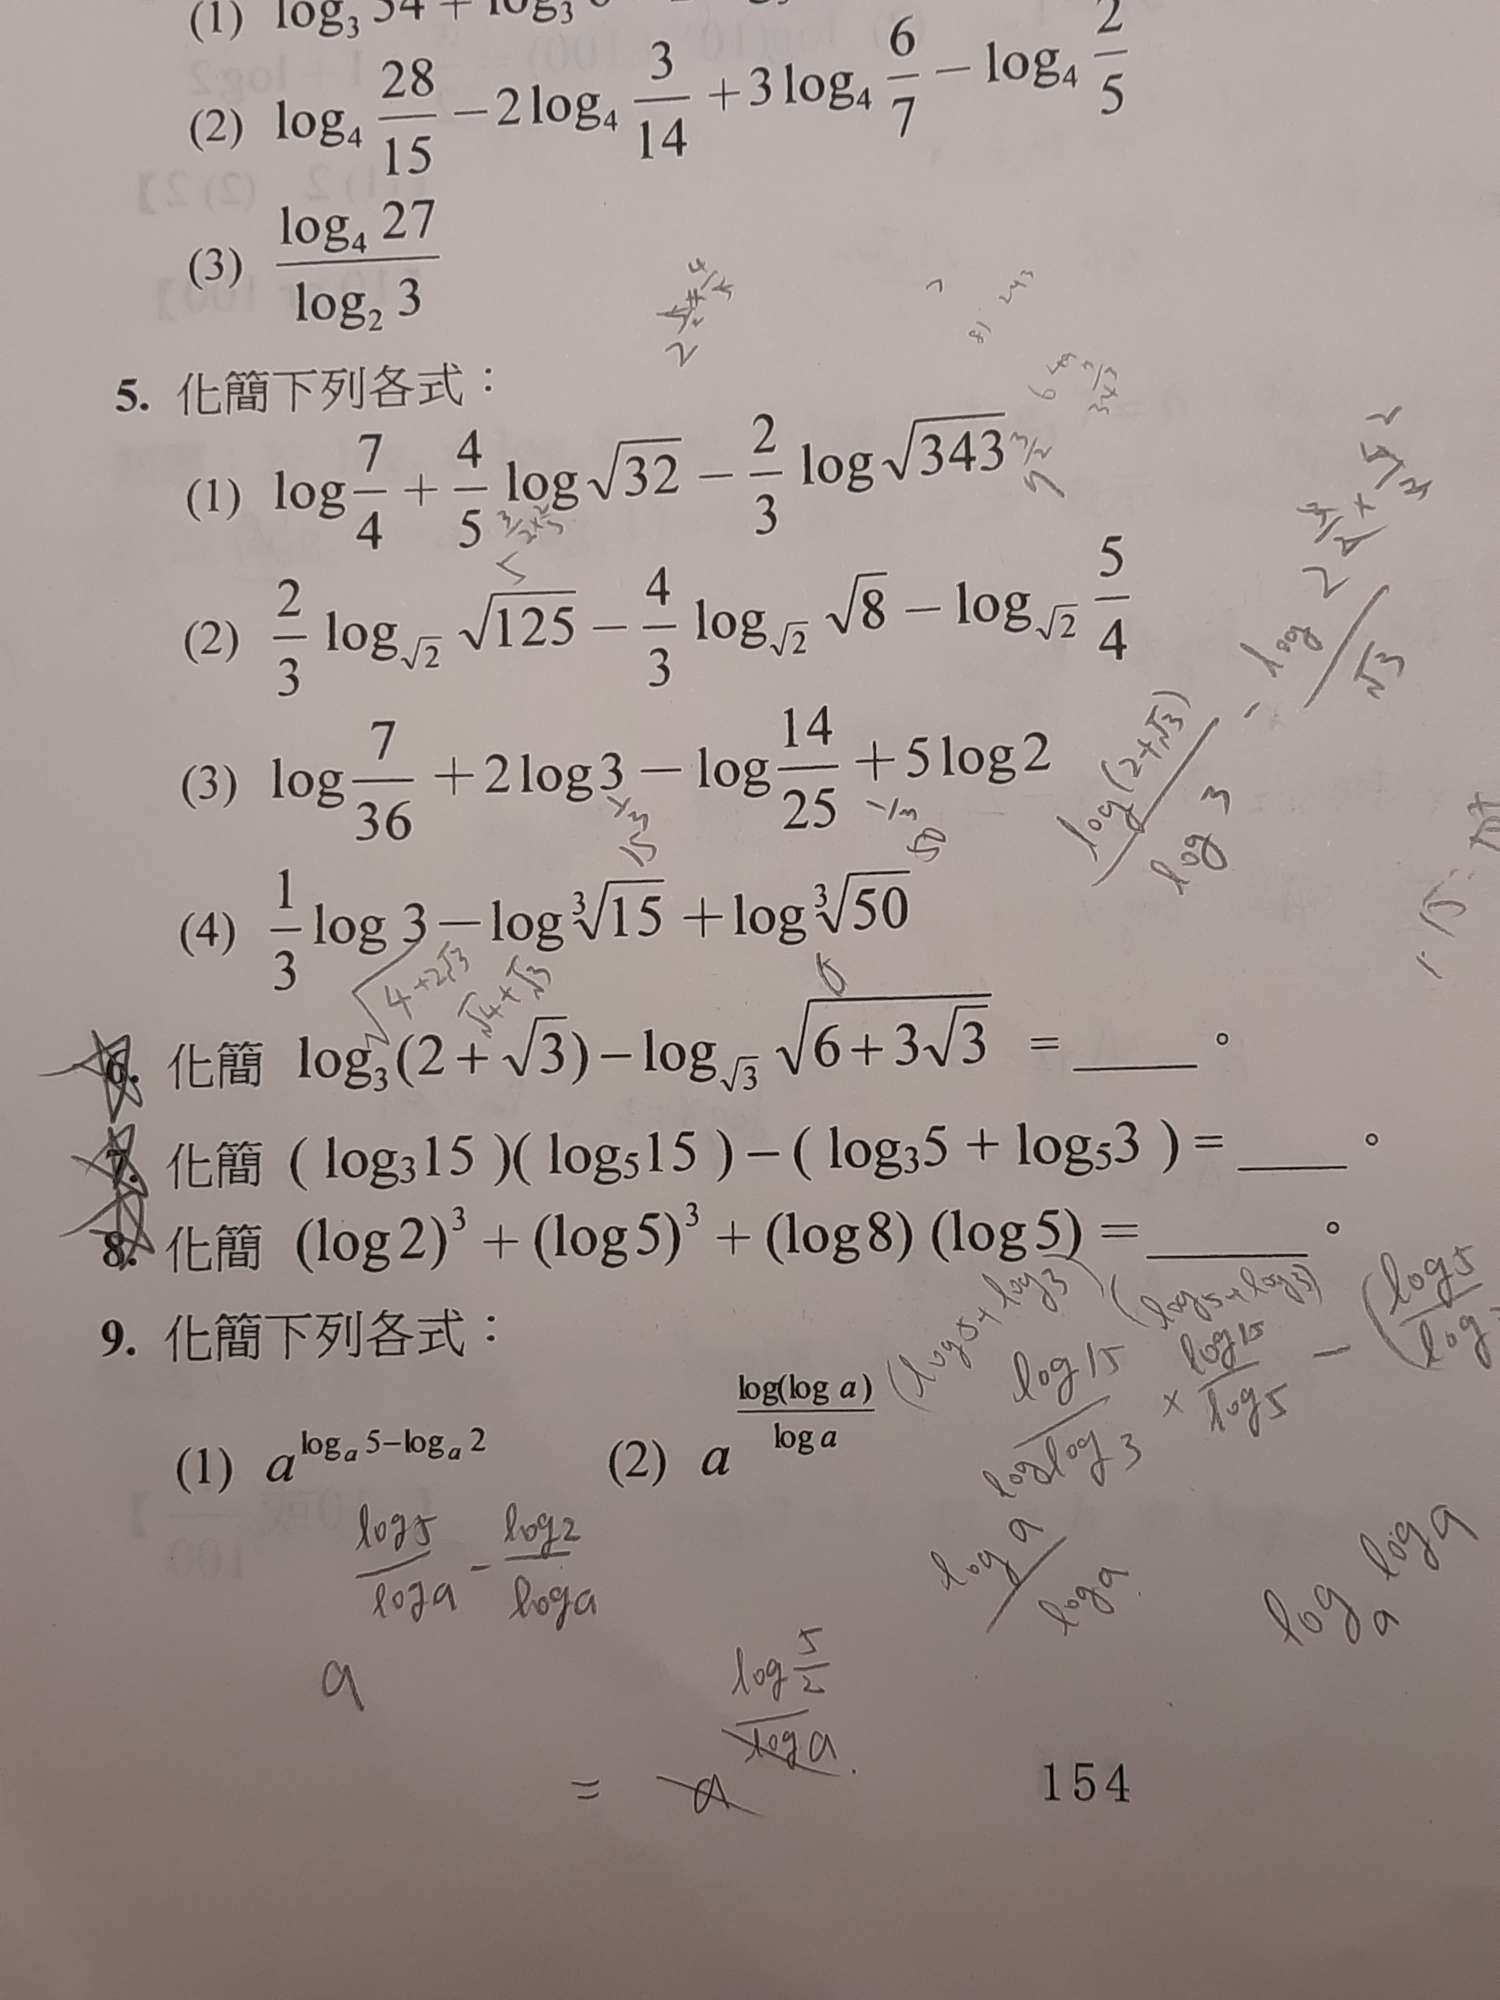 (1) log₃ 54 + log₃ 6
(2) log₄ 28/15 − 2 log₄ 3/14 + 3 log₄ 6/7 − log₄ 2/5
(3) log₄ 27 / log₂ 3
5. 化簡下列各式：
(1) log 7/4 + 4/5 log √32 − 2/3 log √343
(2) 2/3 log_√2 √125 − 4/3 log_√2 √8 − log_√2 5/4
(3) log 7/36 + 2 log 3 − log 14/25 + 5 log 2
(4) 1/3 log 3 − log ∛15 + log ∛50
√4+2√3
√4+√3
log(2+√3) / log 3
√3
6. 化簡 log₃(2+√3) − log_√3 √(6+3√3) = ____。
7. 化簡 ( log₃15 )( log₅15 ) − ( log₃5 + log₅3 ) = ____。
8. 化簡 (log 2)³ + (log 5)³ + (log 8) (log 5) = ____。
9. 化簡下列各式：
(1) a^(logₐ 5−logₐ 2) (2) a^(log(log a) / log a)
(log5+log3) (log5+log3)
log15 / log3 × log15 / log5 − (log5 / log
log5 / loga − log2 / loga
log a / log a
logₐ log a
a
log 5/2 / log a
= a
154